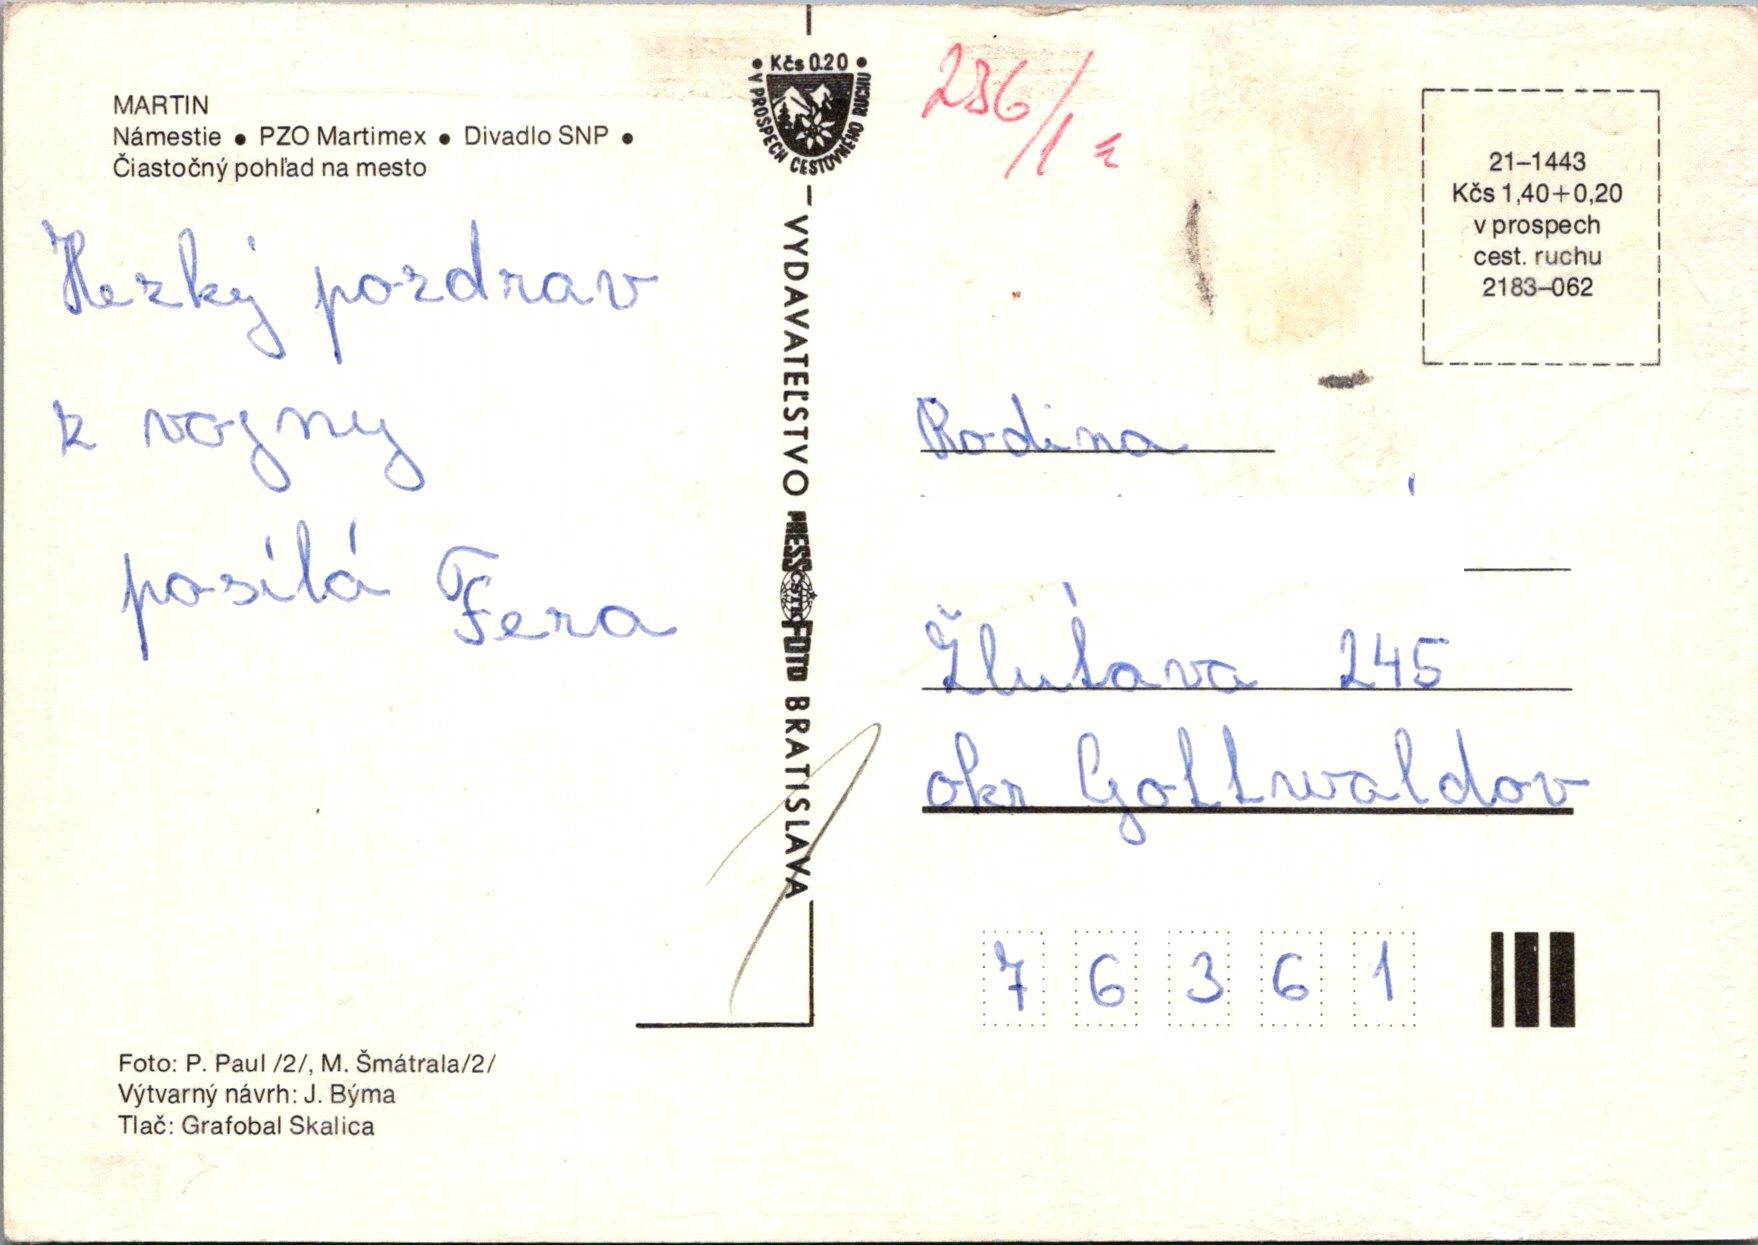 MARTIN
Námestie ● PZO Martimex ● Divadlo SNP ●
Čiastočný pohľad na mesto
Hezký pozdrav
z vojny
posílá Fera
• Kčs 0.20 •
V PROSPECH CESTOVNÉHO RUCHU
VYDAVATEĽSTVO PRESSFOTO BRATISLAVA
ČSTK
236/1
21–1443
Kčs 1,40+0,20
v prospech
cest. ruchu
2183–062
Rodina
Žlutava 245
okr Gottwaldov
7 6 3 6 1
Foto: P. Paul /2/, M. Šmátrala/2/
Výtvarný návrh: J. Býma
Tlač: Grafobal Skalica